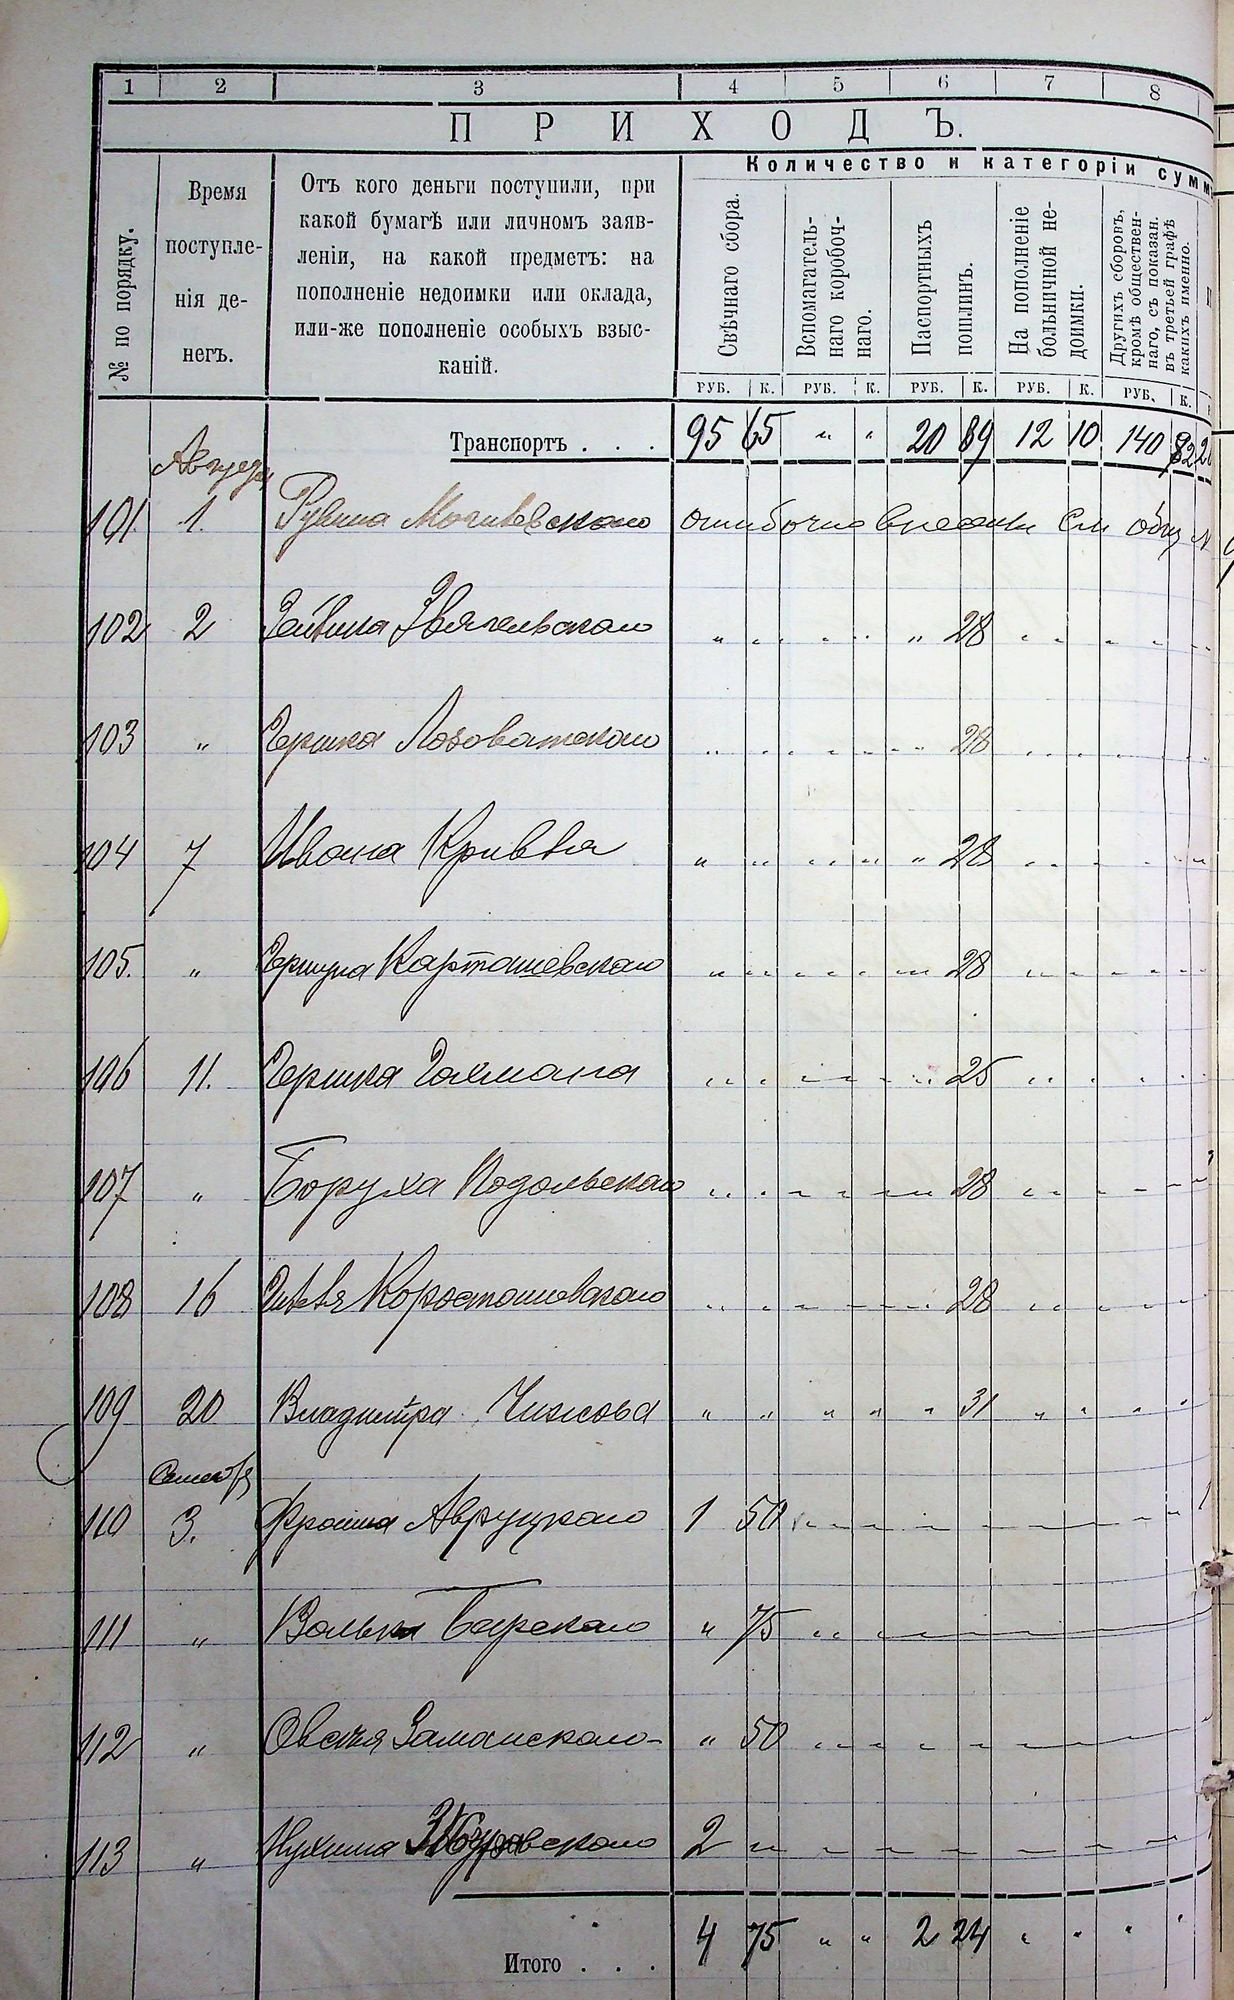 1 2 3 4 5 6 7 8
ПРИХОДЪ.
Количество и категоріи сумм
№ по порядку.
Время
поступле-
нія де-
негъ.
Отъ кого деньги поступили, при
какой бумагѣ или личномъ заяв-
леніи, на какой предметъ: на
пополненіе недоимки или оклада,
или-же пополненіе особыхъ взыс-
каній.
Свѣчнаго сбора.
Вспомагатель-
наго коробоч-
наго.
Паспортныхъ
пошлинъ.
На пополненіе
больничной не-
доимки.
Другихъ сборовъ,
кромѣ обществен-
наго, съ показан.
въ третьей графѣ
какихъ именно.
РУБ. К. РУБ. К. РУБ. К. РУБ. К. РУБ. К.
Транспортъ . . . 95 65 " " 20 89 12 10 140 82
Августа
101 1. Рувина ошибочно внесен См
102 2 Звягельского " " 28
103 " Гершка Лозоватского " 28
104 7 Ивана Кривѣя " " " " " 28
105. " Картошевского " 28
106 11. Гершка Гахмана " 25
107 " Боруха Подольского " 28
108 16 Коростошевского " 28
109 20 Владиміра Чижова " " " " " 31 " "
Сентября
110 3. Фроима Авруцкого 1 50
111 " Барского " 75
112 " Овсѣя Заманского " 50
113 " Нухима 2 "
Итого . . . 4 75 " " 2 24 " " " "